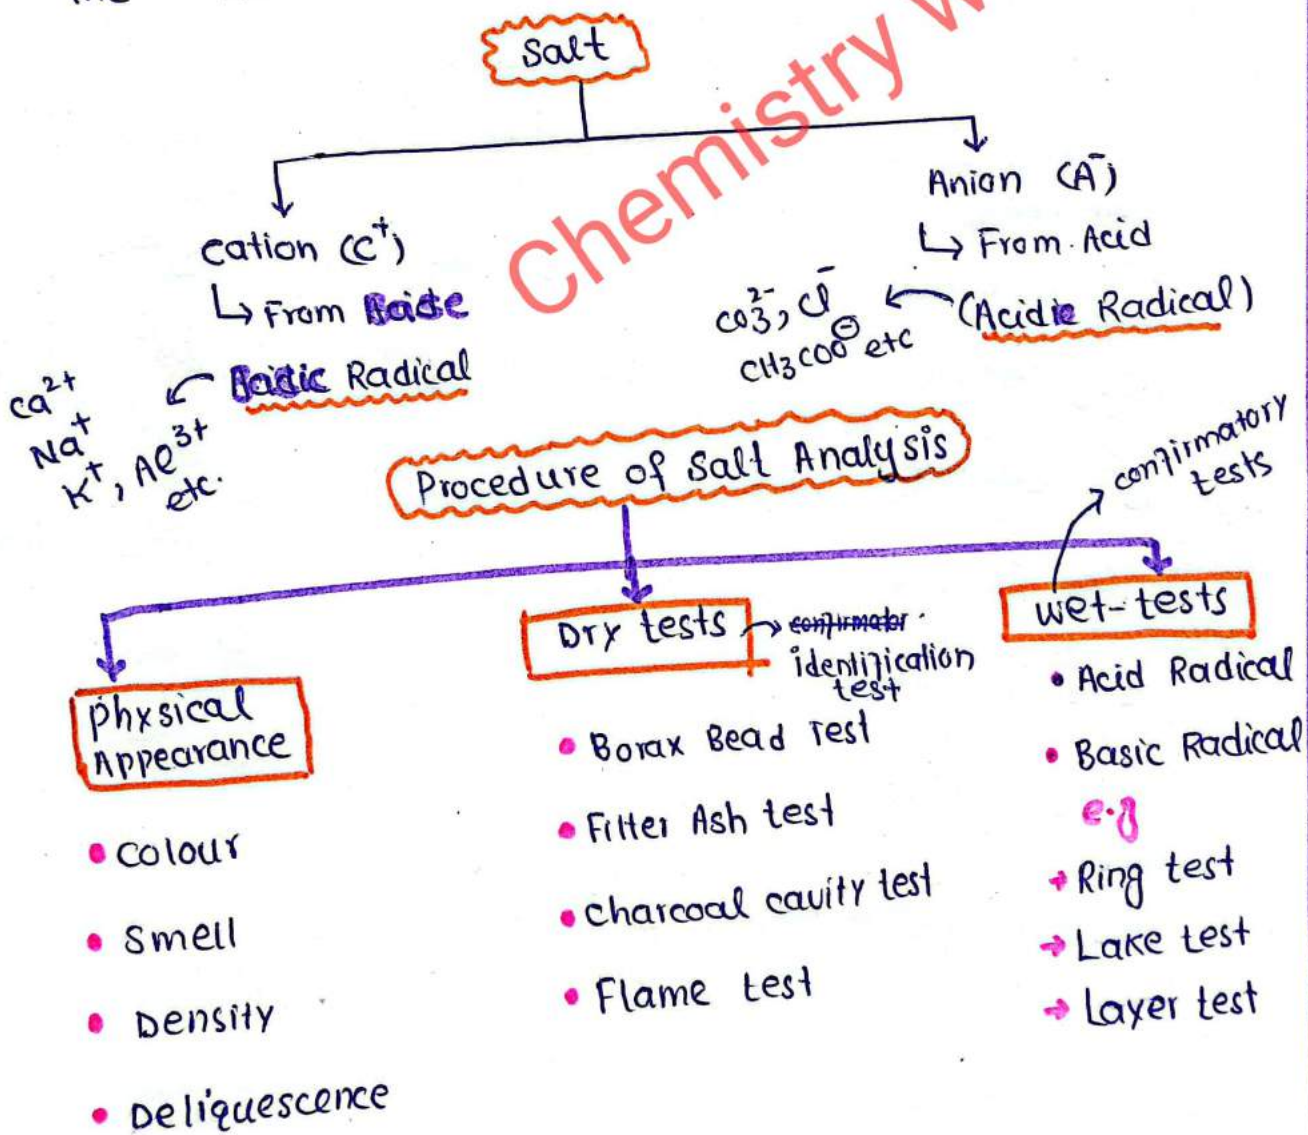 Salt
Chemistry W
Cation (C⁺)
↳ From Base
Basic Radical
Ca²⁺
Na⁺
K⁺, Al³⁺
etc.
Anion (A⁻)
↳ From Acid
(Acidic Radical)
CO₃²⁻, Cl⁻
CH₃COO⊖ etc
Procedure of Salt Analysis
Physical
Appearance
• Colour
• Smell
• Density
• Deliquescence
Dry tests → confirmator.
identification
test
• Borax Bead Test
• Filter Ash test
• Charcoal cavity test
• Flame test
confirmatory
tests
Wet-tests
• Acid Radical
• Basic Radical
e.g
→ Ring test
→ Lake test
→ Layer test